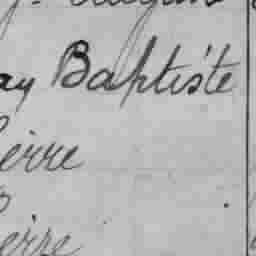 ay Baptiste
ierre
ierre